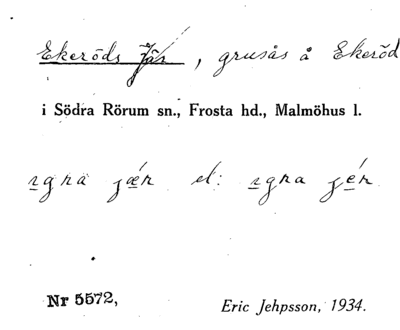 Ekeröds Jär, grusås å Ekeröd
i Södra Rörum sn., Frosta hd., Malmöhus l.
el:
Nr 5572,
Eric Jehpsson, 1934.